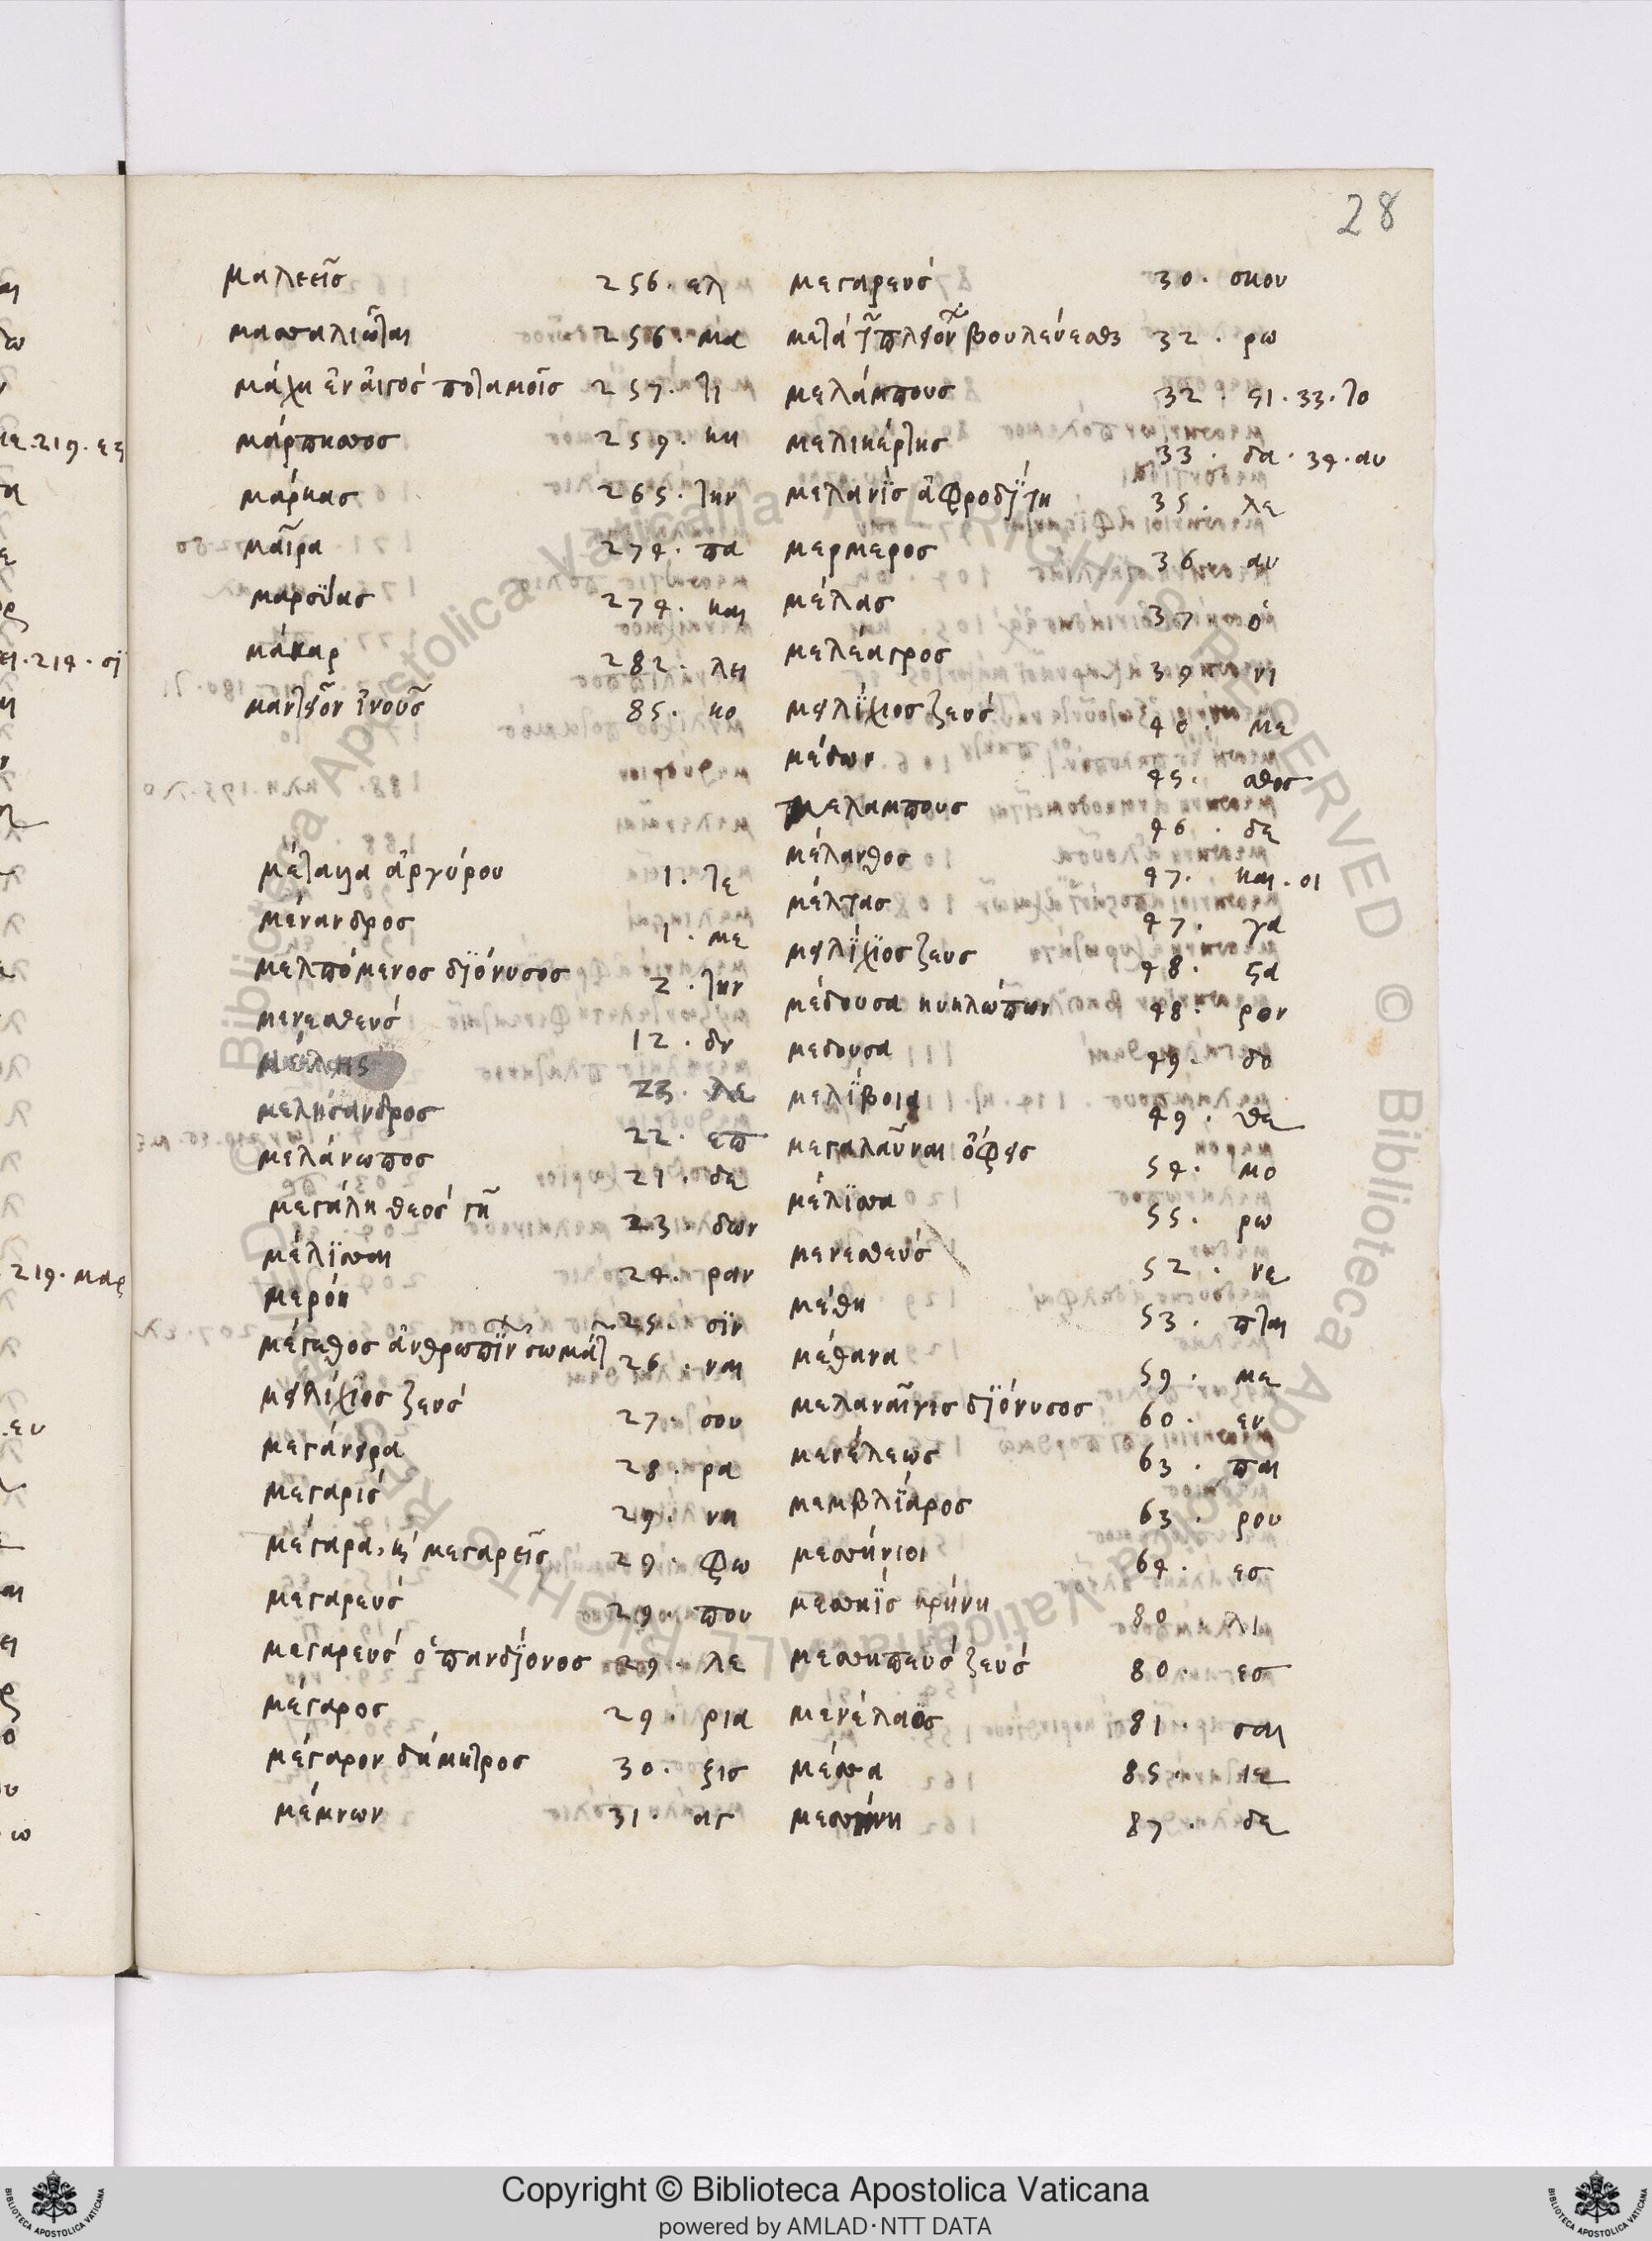 28
μαλεεῖσ 256. ελ
μασσαλιῶται 256. μα
μάχη ἐν αἰγὸσ ποταμοῖσ 257. τι
μάρπησσοσ 259. κη
μάρκασ 265. την
μαῖρα 274. πα
μαρσύασ 274. και
μάκαρ 282. λει
μαντεῖον ἰνοῦσ 85. κο
μέταλλα ἀργύρου 1. τε
μένανδροσ 1. με
μελπόμενοσ διόνυσοσ 2. την
μενεσθεύσ 12. δν
μέλης 23. λε
μελήσανδροσ 22. επ
μελάνωποσ 21. δε
μεγάλη θεόσ γῆ 23. δων
μέλισσαι 24. ραν
μερόη 25. σϊν
μέγεθοσ ἀνθρωπίν σωμάτ 26. ναι
μειλίχιοσ ζεύσ 27. σου
μεγάνειρα 28. ρα
μεγαρίσ 29. νη
μέγαρα, κ μεγαρεῖσ 29. φω
μεγαρεύσ 29. που
μεγαρεύσ ὁ πανδίονοσ 29. λε
μέγαροσ 29. ρια
μέγαρον δήμητροσ 30. ξισ
μέμνων 31. αγ
μεγαρεύσ 30. σκου
μετὰ βουλεύεσθ 32. ρω
μελάμπουσ 32. 51. 33. το
μελικέρτησ 33. δα. 34. αυ
μελανὶσ ἀφροδίτη 35. λε
μερμεροσ 36. αυ
μέλασ 37. ὁ
μελέαγροσ 39. νι
μειλίχιοσ ζεύσ 40. με
μέδων 45. σθοσ
μελαμπουσ 46. δε
μέλανθοσ 47. και. οι
μέλτασ 47. γα
μειλίχϊοσ ζευσ 48. ξα
μέδουσα κυκλώπων 48. ρον
μεδουσα 49. δο
μελίβοια 49. θε
μεγαλαῦναι ὄφεισ 54. μο
μέλϊσσα 55. ρω
μενεσθεύσ 52. νε
μέθη 53. πται
μέθανα 59. με
μελαναῖγισ διόνυσοσ 60. εν
μενέλεωσ 63. παι
μεμβλίαροσ 63. ρου
μεσσήνιοι 64. εσ
μεσσηῒσ κρήνη 80. λι
μεσσαπεύσ ζεύσ 80. εσ
μενέλαοσ 81. σαι
μέσσα 85. ιε
μεσσήνη 87. δε
Copyright © Biblioteca Apostolica Vaticana
powered by AMLAD·NTT DATA